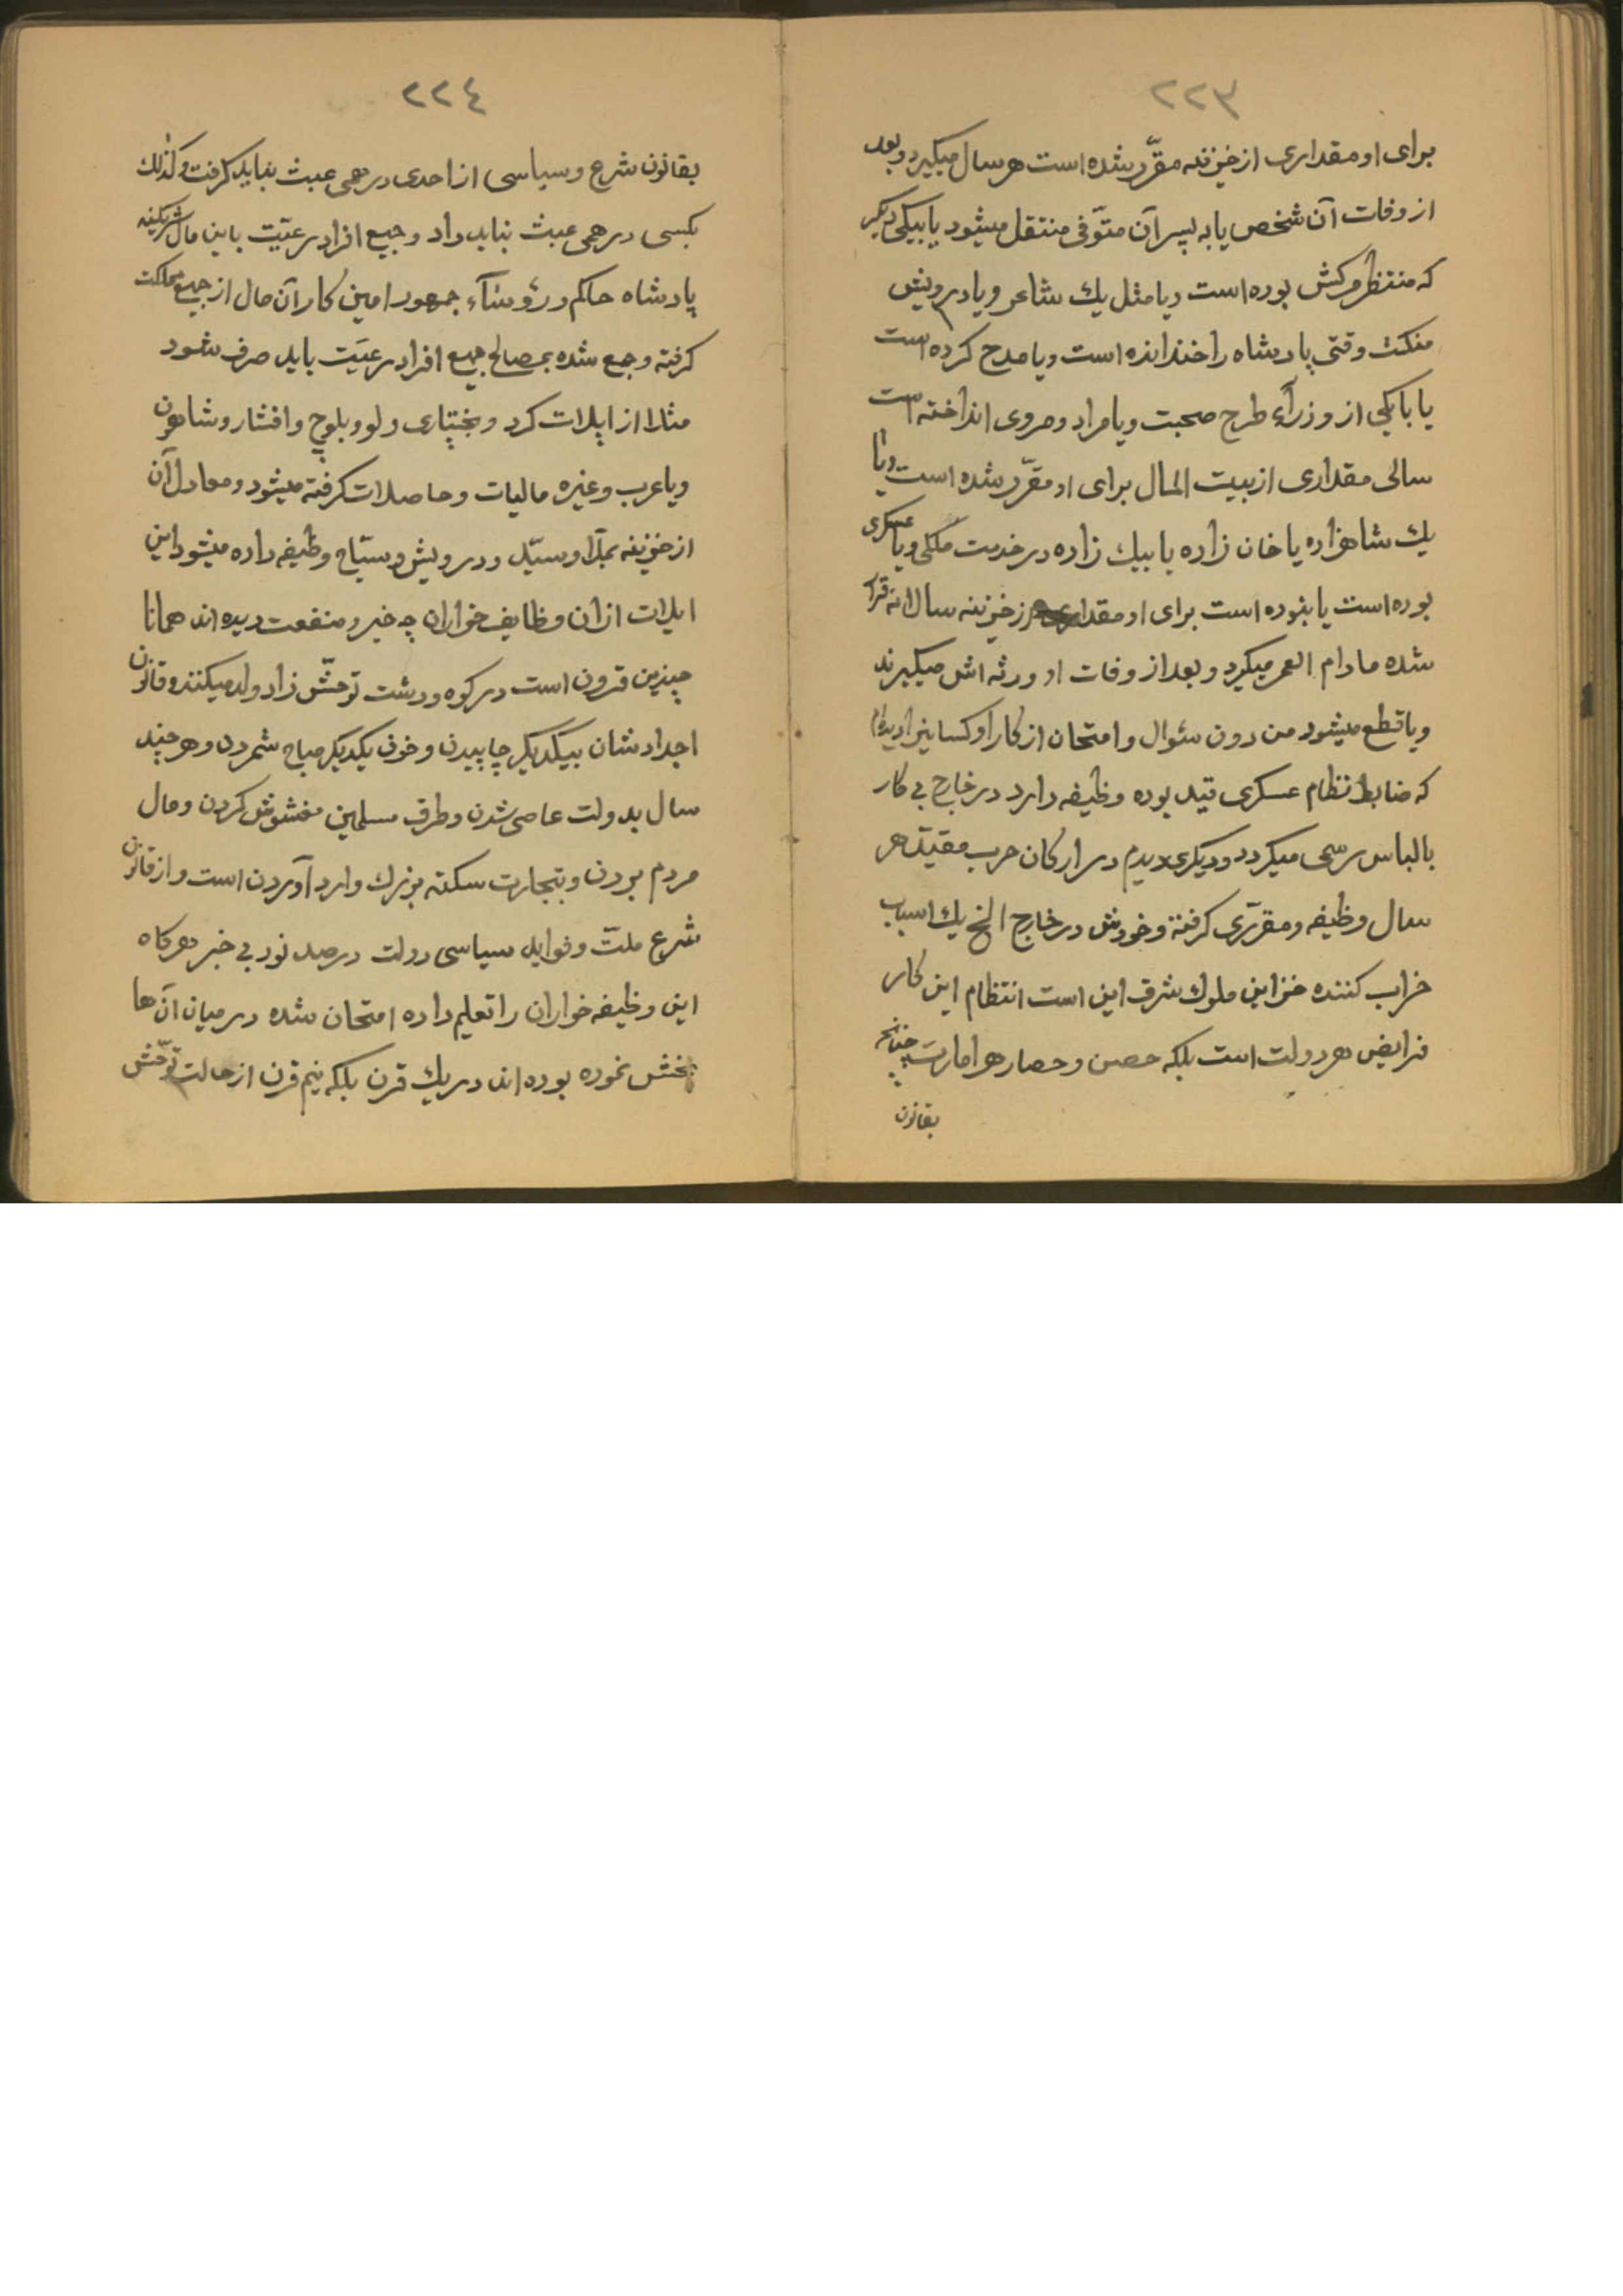 ٢٢٣
برای او مقداری از خزینه مقرّر شده است هر سال میگیرد و بعد
از وفات آن شخص یا به پسر آن متوّفی منتقل میشود یا بیکی دیگر
که منتظر مرکش بوده است و یا مثل یك شاعر و یا درویش
منکت وقتی پادشاه را خندانده است و یا مدح کرده است
یا با یکی از وزرآء طرح صحبت و یا مراد و مروی انداخته است
سالی مقداری از بیت المال برای او مقرّر شده است و یا
یك شاهزاده یا خان زاده یا بیك زاده در خدمت ملکی و یا عسکری
بوده است یا نبوده است برای او مقدار از خزینه سالانه قرار
شده مادام العمر میگیرد و بعد از وفات او ورثه اش میگیرند
و یا قطع میشود من دون سئوال و امتحان از کار او کسانیرا دیدم
که ضابط نظام عسکری قید بوده وظیفه دارد در خارج بی کار
بالباس رسمی میکردد و دیکری دیدم در ارکان حرب مقیّد هر
سال وظیفه و مقرّری کرفته و خودش در خارج الخ یك اسباب
خراب کننده خزاین ملوك شرق این است انتظام این کار
فرایض هر دولت است بلکه حصن و حصار هر امارت چنانچه
بقانون
٢٢٤
بقانون شرع و سیاسی از احدی درهمی عبث نباید کرفت و کذلك
بکسی درهمی عبث نباید داد و جمیع افراد رعیّت باین مال شریکند
پادشاه حاکم و رؤسآء جمهور امین کار آن مال از جمیع مملکت
کرفته و جمع شده بمصالح جمیع افراد رعیّت باید صرف شود
مثلا از ایلات کرد و بختیاری و لور و بلوچ و افشار و شاهون
و یا عرب و غیره مالیات و حاصلات کرفته میشود و معادل آن
از خزینه بملّا و سیّد و درویش و سیّاح وظیفه داده میشود این
ایلات از ان وظایف خواران چه خیر و منفعت دیده اند همانا
چندین قرون است در کوه و دشت توحّش زاد و ولد میکنند و قانون
اجدادشان بیکدیکر چاپیدن و خون یکدیکر مباح شمردن و هر چند
سال بدولت عاصی شدن و طرق مسلمین مغشوش کردن و مال
مردم بردن و بتجارت سکته بزرك وارد آوردن است و از قانون
شرع ملّت و فواید سیاسی دولت درصد نود بی خبر هرکاه
این وظیفه خواران را تعلیم داده امتحان شده در میان آن ها
پخش نموده بوده اند در یك قرن بلکه نیم قرن از حالت توّحش